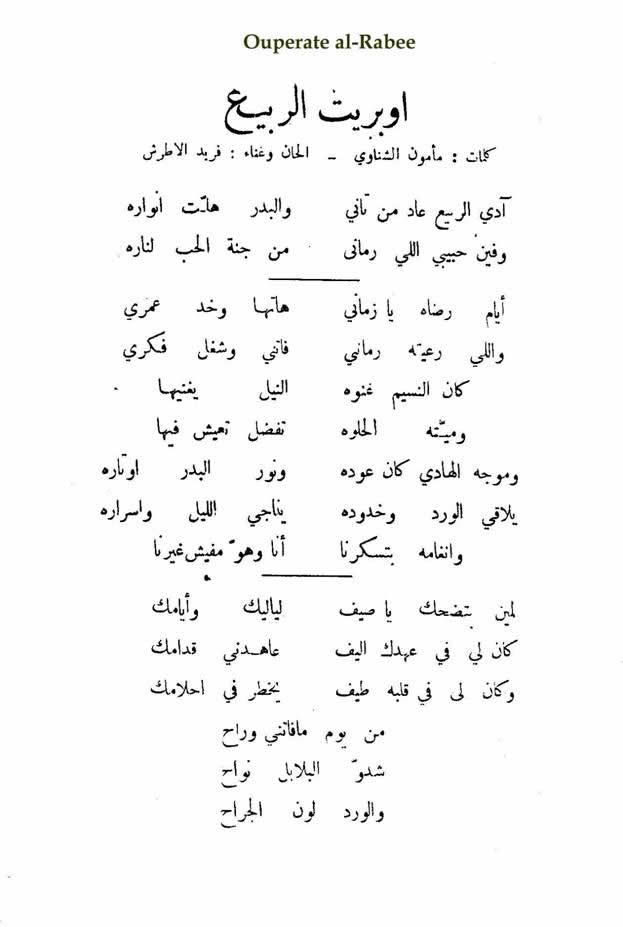 Ouperate al-Rabee
اوبريت الربيع
كلمات : مأمون الشناوي – الحان وغناء : فريد الاطرش
آدي الربيع عاد من تاني والبدر هلّت انواره
وفين حبيبي اللي رمانى من جنة الحب لناره
أيام رضاه يا زماني هاتها وخد عمري
واللي رعيته رماني فاتني وشغل فكري
كان النسيم غنوه النيل يغنيها
وميّته الحلوه تفضل تعيش فيها
وموجه الهادي كان عوده ونور البدر اوتاره
يلاقي الورد وخدوده يناجي الليل واسراره
وانغامه بتسكرنا أنا وهوّ مفيش غيرنا
لمين بتضحك يا صيف لياليك وأيامك
كان لي في عهدك اليف عاهدني قدامك
وكان لى في قلبه طيف يخطر في احلامك
من يوم مافاتني وراح
شدوّ البلابل نواح
والورد لون الجراح